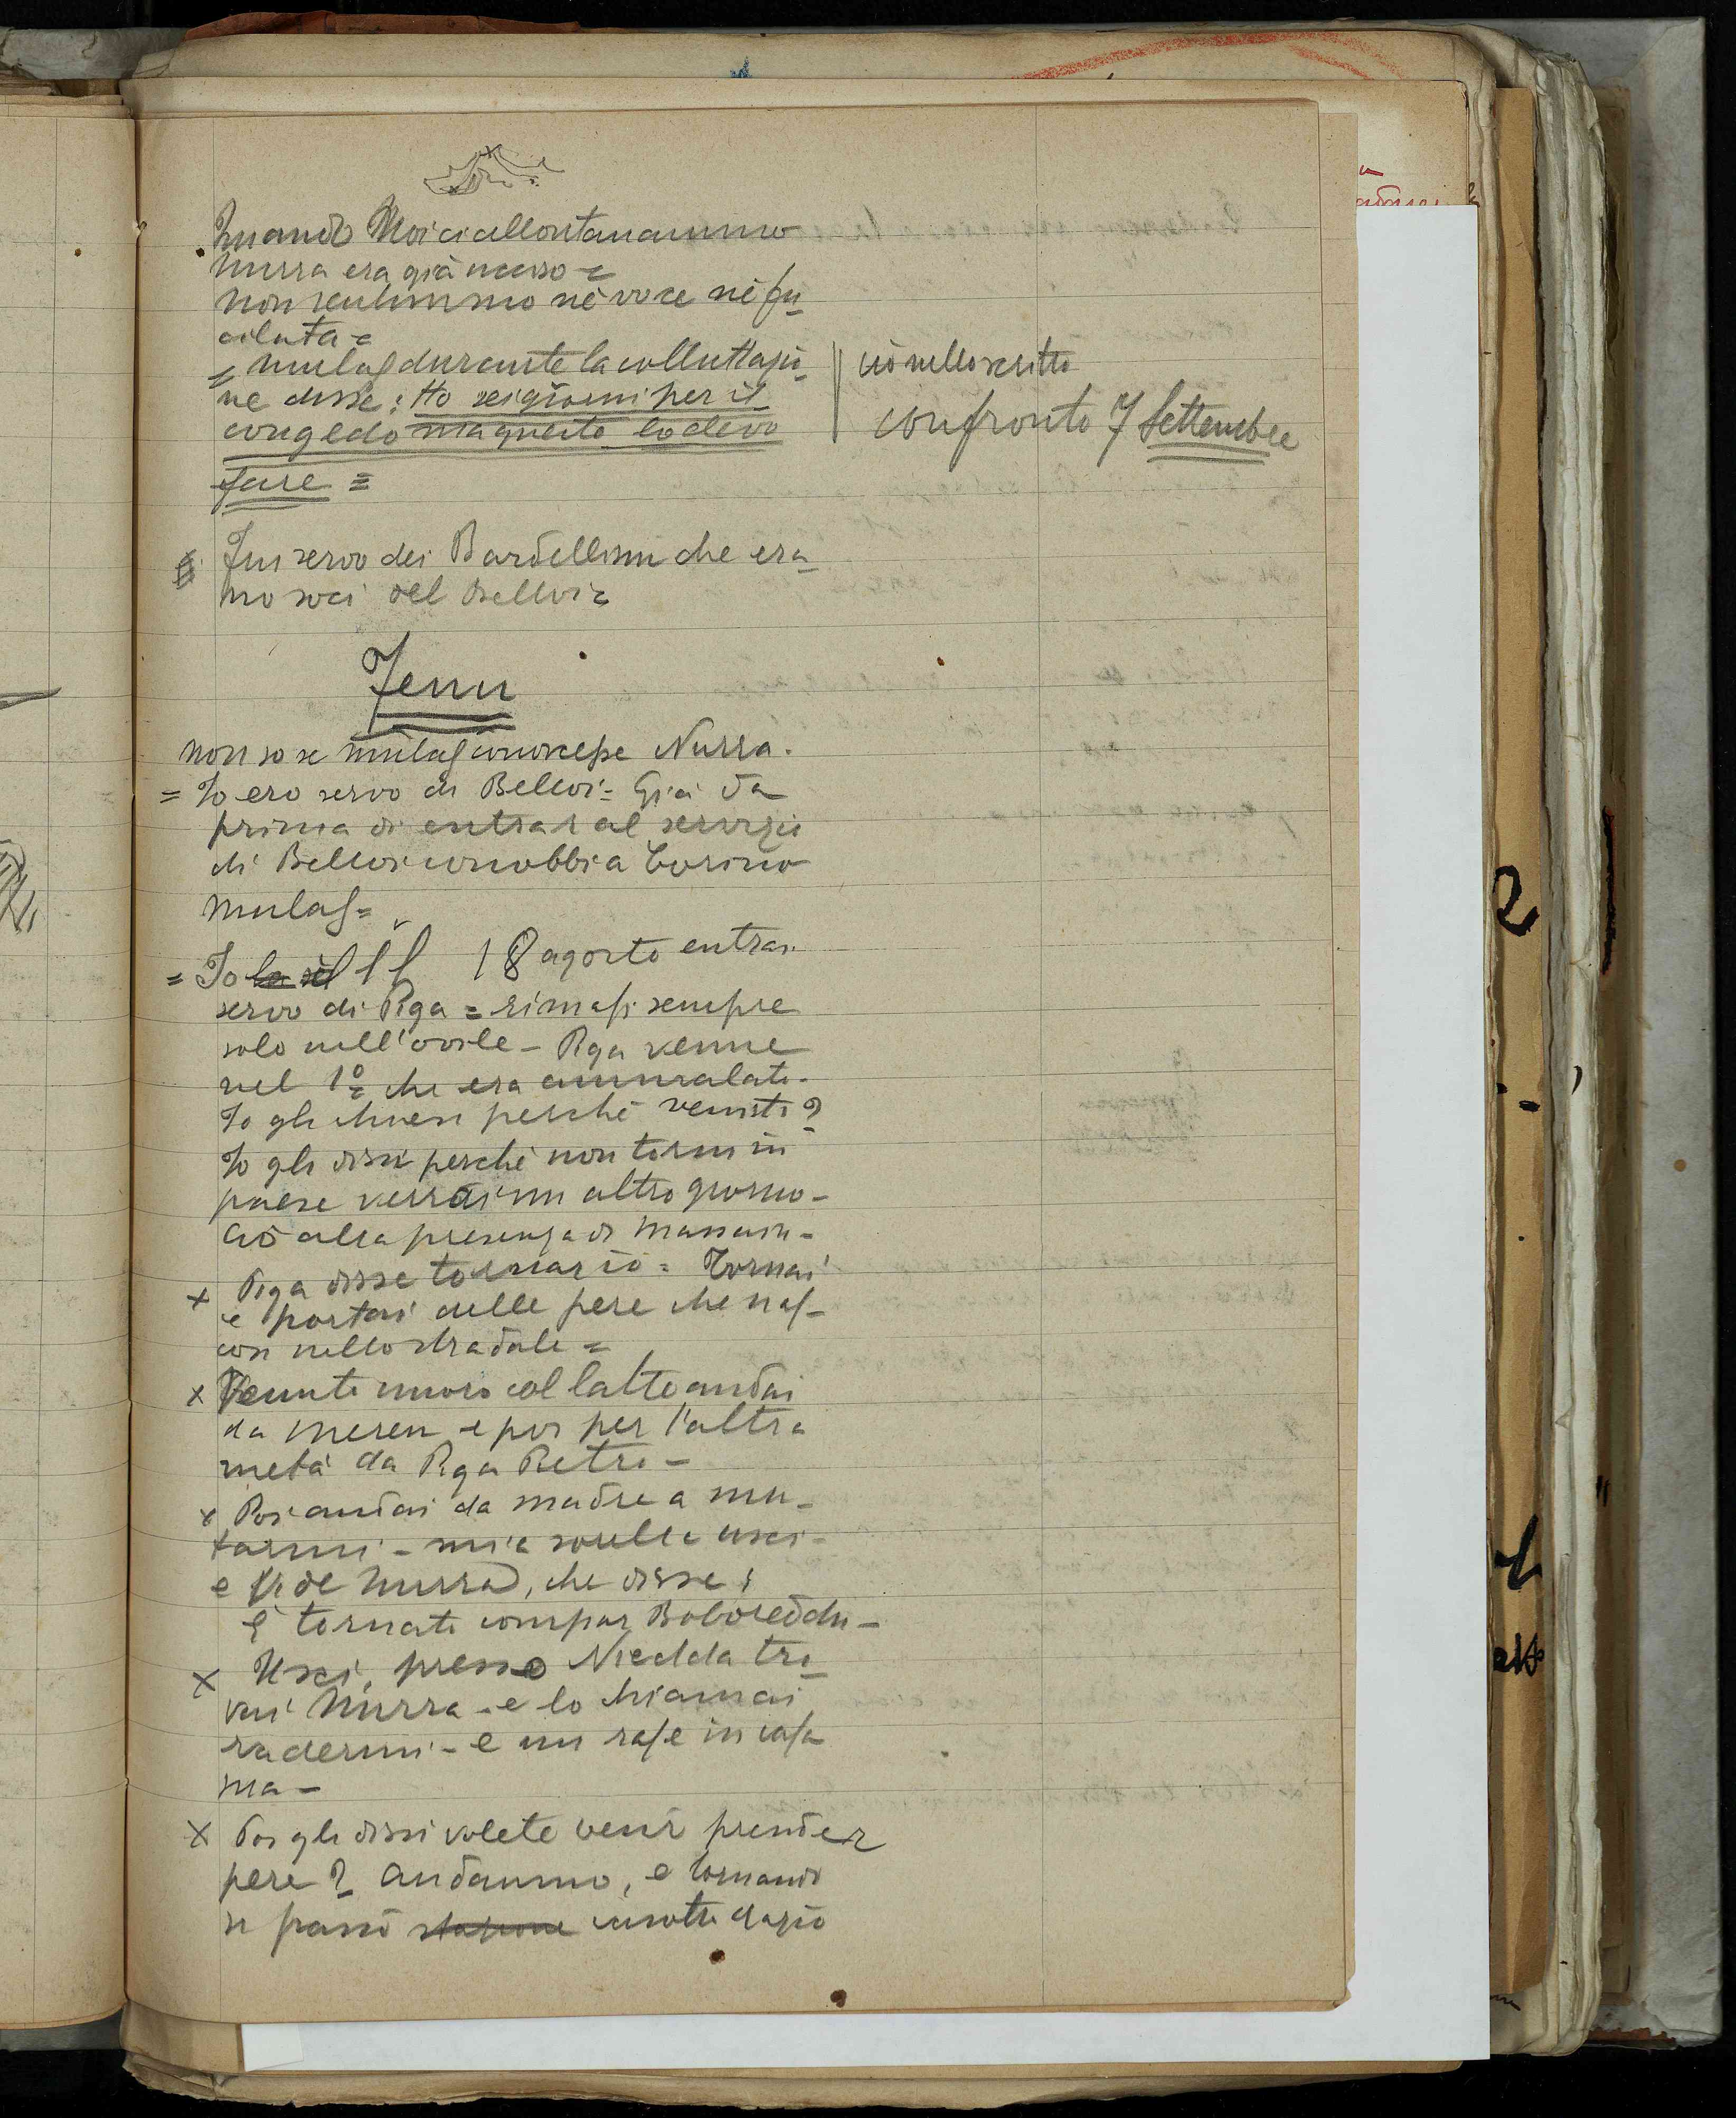 Quando Noi ci allontanammo
Nurra era già ucciso =
non sentimmo nè voce nè fu_
cilata =
= Mulas durante la colluttazio_
ne disse: Ho sei giorni per il
congedo ma questo lo devo
fare =
ciò nello scritto
confronto 7 Settembre
Fui servo dei Bardellinu che era_
no soci del Belloi =
Zenu
non so se Mulas conoscesse Nurra.
= Io ero servo di Belloi = Già da
prima di entrar al servizio
di Belloi conobbi a Torino
Mulas =
= Io 18 agosto entrai
servo di Piga = rimasi sempre
solo nell'ovile - Piga venne
nel 1º che era ammalato.
Io gli chiesi perchè venisti?
Io gli dissi perchè non torni in
paese verrai un altro giorno -
Ciò alla presenza di
x Piga disse tornar io = Tornai
e portai delle pere che nas_
con nello stradale =
x Venuto Nuoro col latte andai
da Mereu e poi per l'altra
metà da Piga Pietro -
x Poi andai da madre a mu_
tarmi - mia sorella uscì -
e vide Nurra, che disse:
È tornato compar Boboreddu -
x Uscì, presso Niedda tro_
vai Nurra - e lo chiamai
radermi - e mi rase in casa
mia -
x Poi gli dissi volete venir prender
pere? andammo, e tornando
si passò stazione casotto dazio